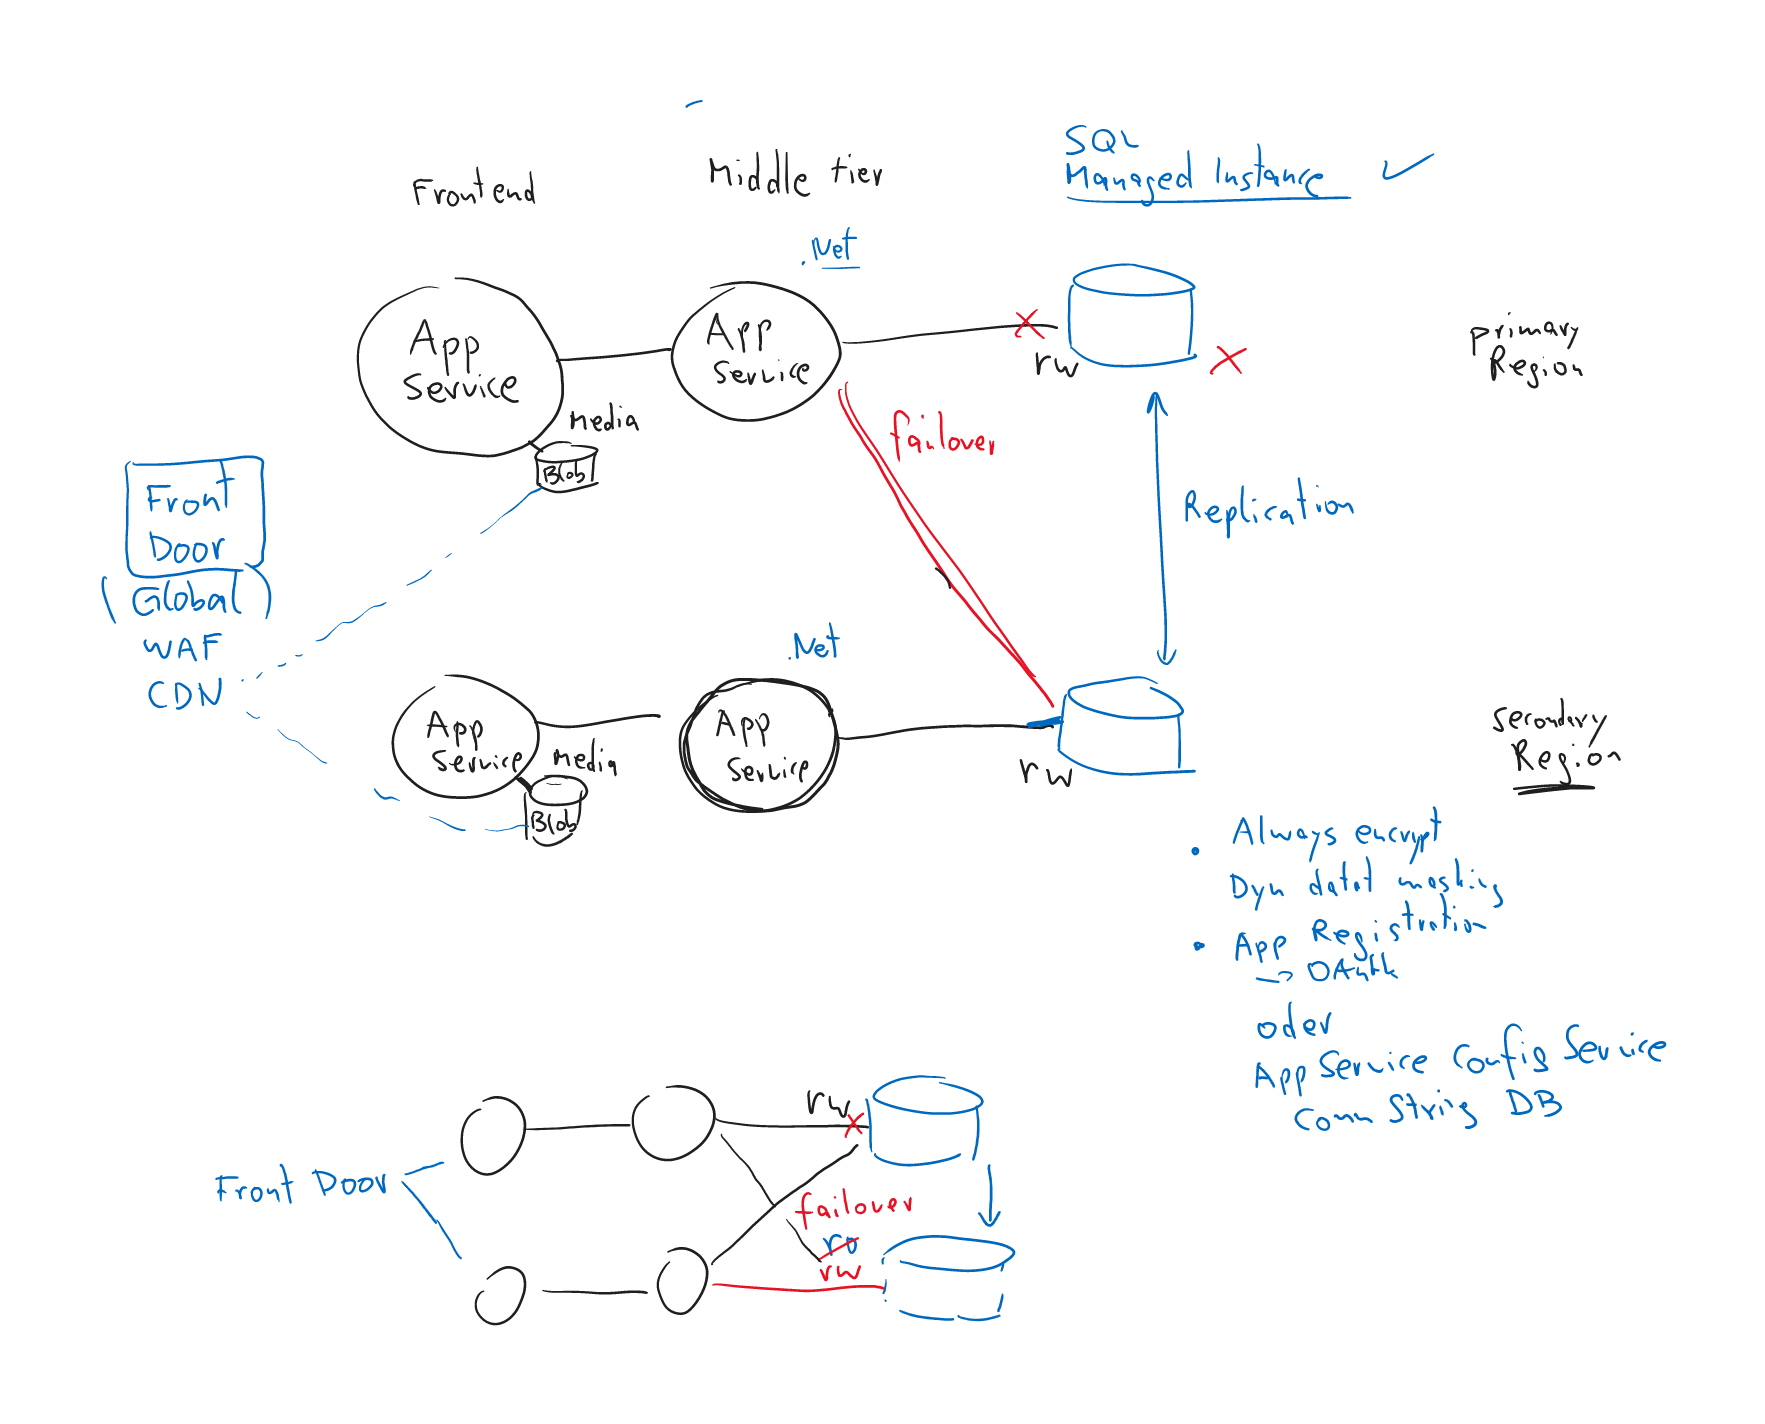 Frontend
Middle tier
SQL
Managed Instance
.Net
App
Service
App
Service
rw
primary
Region
Media
Blob
failover
Replication
Front
Door
(Global)
WAF
CDN
.Net
App
Service
Media
Blob
App
Service
rw
secondary
Region
Always encrypt
Dyn datat masking
App Registration
→ OAuth
oder
App Service Config Service
Conn String DB
Front Door
rw
failover
ro
rw